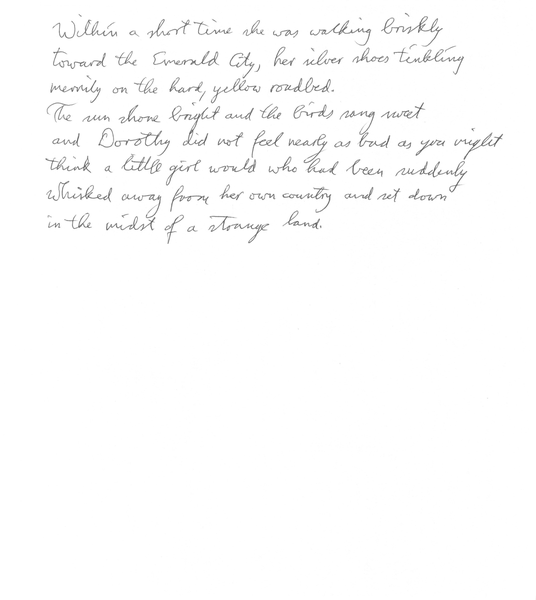 Within a short time she was walking briskly
toward the Emerald City, her silver shoes tinkling
merrily on the hard, yellow roadbed.
The sun shone bright and the birds sang sweet
and Dorothy did not feel nearly as bad as you might
think a little girl would who had been suddenly
whisked away from her own country and set down
in the midst of a strange land.